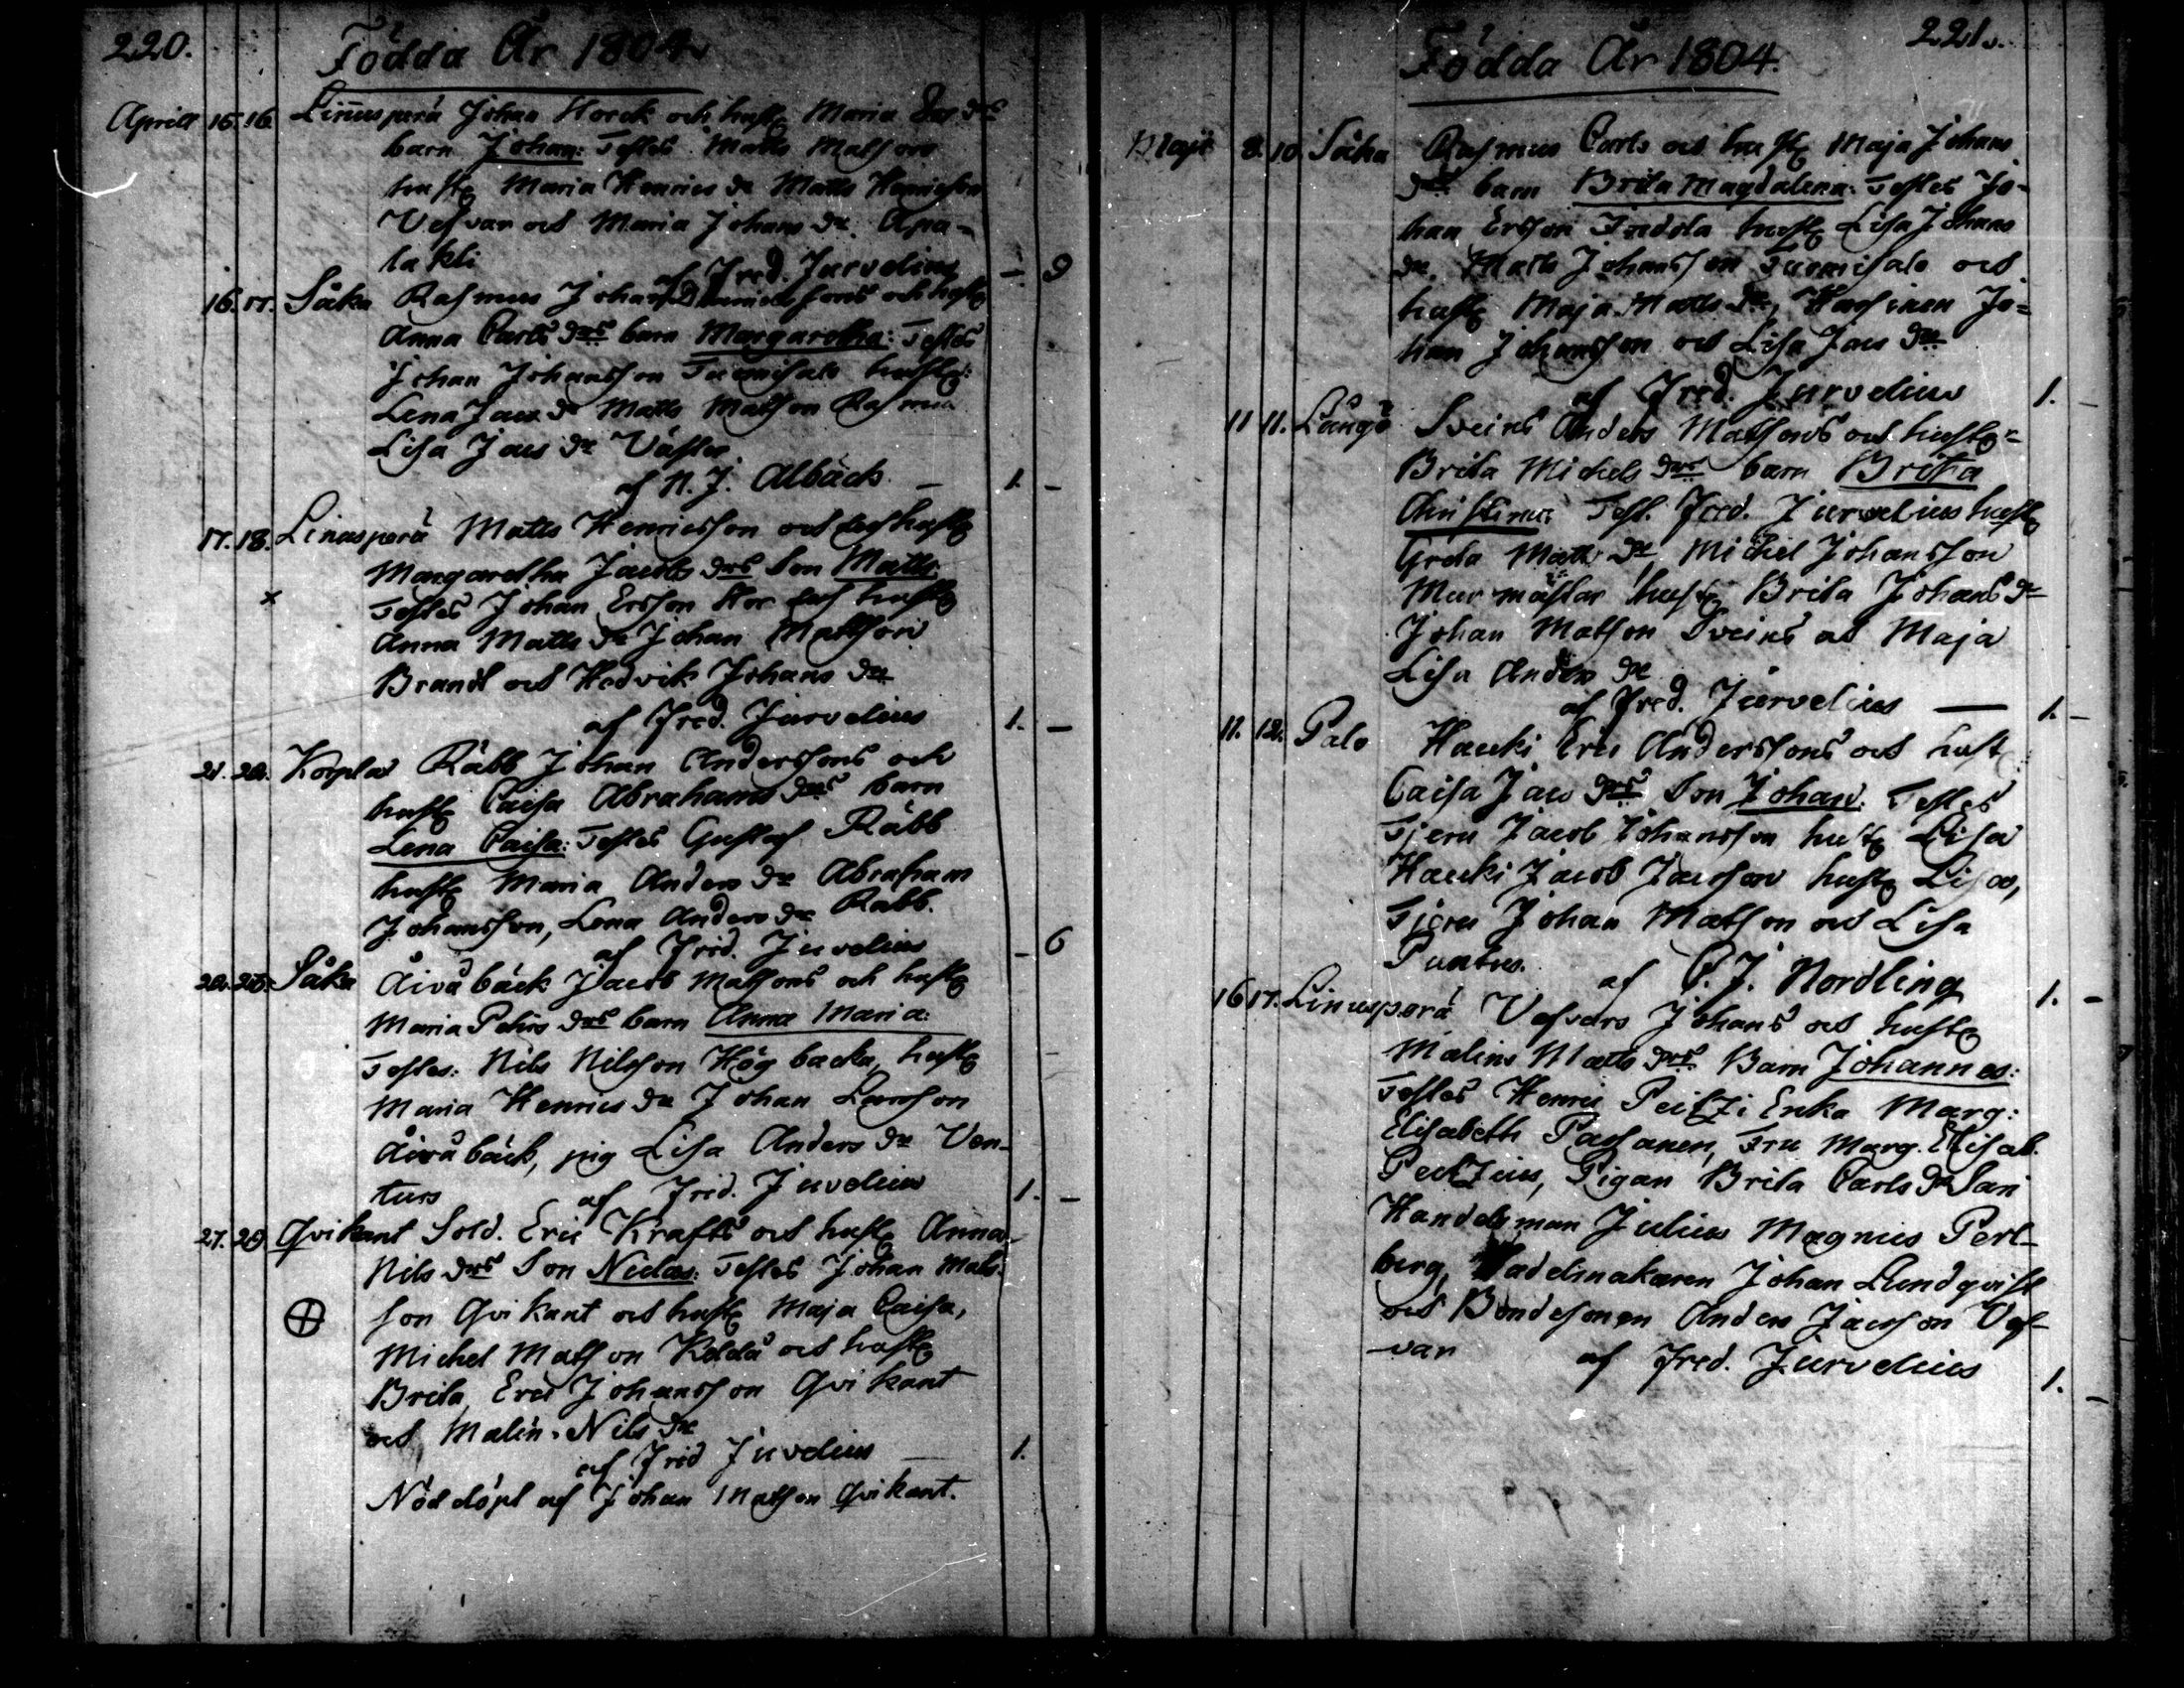 220.
Födda År 1804
Aprill 15. 16. Linusperä Johan Storck och hust: Maria Jac drs
barn Johan: Testes Matts Matsons
hust: Maria Henrics dr Matts Henricson
Vesvar och Maria Johans dr. Apa-
lakti
af Fred. Jurvelius — 9
16. 17. Såka Rasmus Johan Danielssons och hust:
Anna Carls drs barn Margaretha: Testes
Johan Johansson Tuomisalo hust:
Lena Jacs dr Matts Matson Rasmus
Lisa Jacs dr Väster
af N. J. Albäck — 1. —
17. 18. Linusperä Matts Henricsson och hust:
Margaretha Jacobs drs Son Matts:
Testes Johan Ersson Stor och hust:
x
Anna Matts dr Johan Matsson
Brandt och Hedvik Johans dr
af Fred. Jurvelius 1. —
21. 22. Korpla Räbb Johan Anderssons och
hust: Caisa Abrahams drs barn
Lena Caisa: Testes Gustaf Räbb
hust: Maria Anders dr Abraham
Johansson, Lena Anders dr Räbb.
af Frid. Juvelius — 6
Såka Åivåbäck Jacob Matsons och hust:
Maria Pehrs drs barn Anna Maria:
Testes: Nils Nilsson Högbacka, hust:
Maria Henrics dr Johan Larsson
Åivåbäck, pig Lisa Anders dr Ven-
turs af Frid. Juvelius 1. —
27. 29 Qvikant Sold. Eric Krafts och hust: Anna
Nils drs Son Niclas: Testes Johan Mats-
son Qvikant och hust: Maja Caisa,
Michel Matson Keldå och hust:
Brita, Eric Johansson Qvikant
och Malin Nils dr
af Frid Juvelius — 1.
Nöddöpt af Johan Matson Qvikant.
221.
Födda År 1804.
Maji 8. 10 Såka Rasmus Carls och hust: Maja Johans
drs barn Brita Magdalena: Testes Jo-
han Ersson Indola hust: Lisa Johans
dr. Matts Johansson Tuomisalo och
hust: Maja Matts dr, Hassinen Jo-
han Johansson och Lisa Jacs dr
af Fred. Jurvelius 1. —
11 11. Långö Sveins Anders Matsons och hust:
Brita Michels drs barn Brita
Christina: Test. Fred. Jurvelius hust:
Greta Matts dr, Michel Johansson
Murmästar hust: Brita Johans dr
Johan Matson Sveins och Maja
Lisa Anders dr
af Fred. Jurvelius — 1. —
11. 12. Palo Hauki Eric Anderssons och hust:
Caisa Jacs drs Son Johan: Testes
Tjeru Jacob Johansson hust: Lisa
Hauki Jacob Jacosson hust: Lisa,
Tjeru Johan Matson och Lisa
Puntus.
af C. J. Nordling 1. —
16 17. Linusperä Vesvars Johans och hust:
Malins Matts drs Barn Johannes:
Testes Henric Peitzi Enka Marg:
Elisabeth Passanen, Fru Marg. Elisab.
Peitzius, Pigan Brita Carls dr Sari
Handelsman Julius Magnus Perl-
berg, Sadelmakaren Johan Lundqvist
och Bondesonen Anders Jacsson Ves-
var af Fred. Jurvelius
1. —